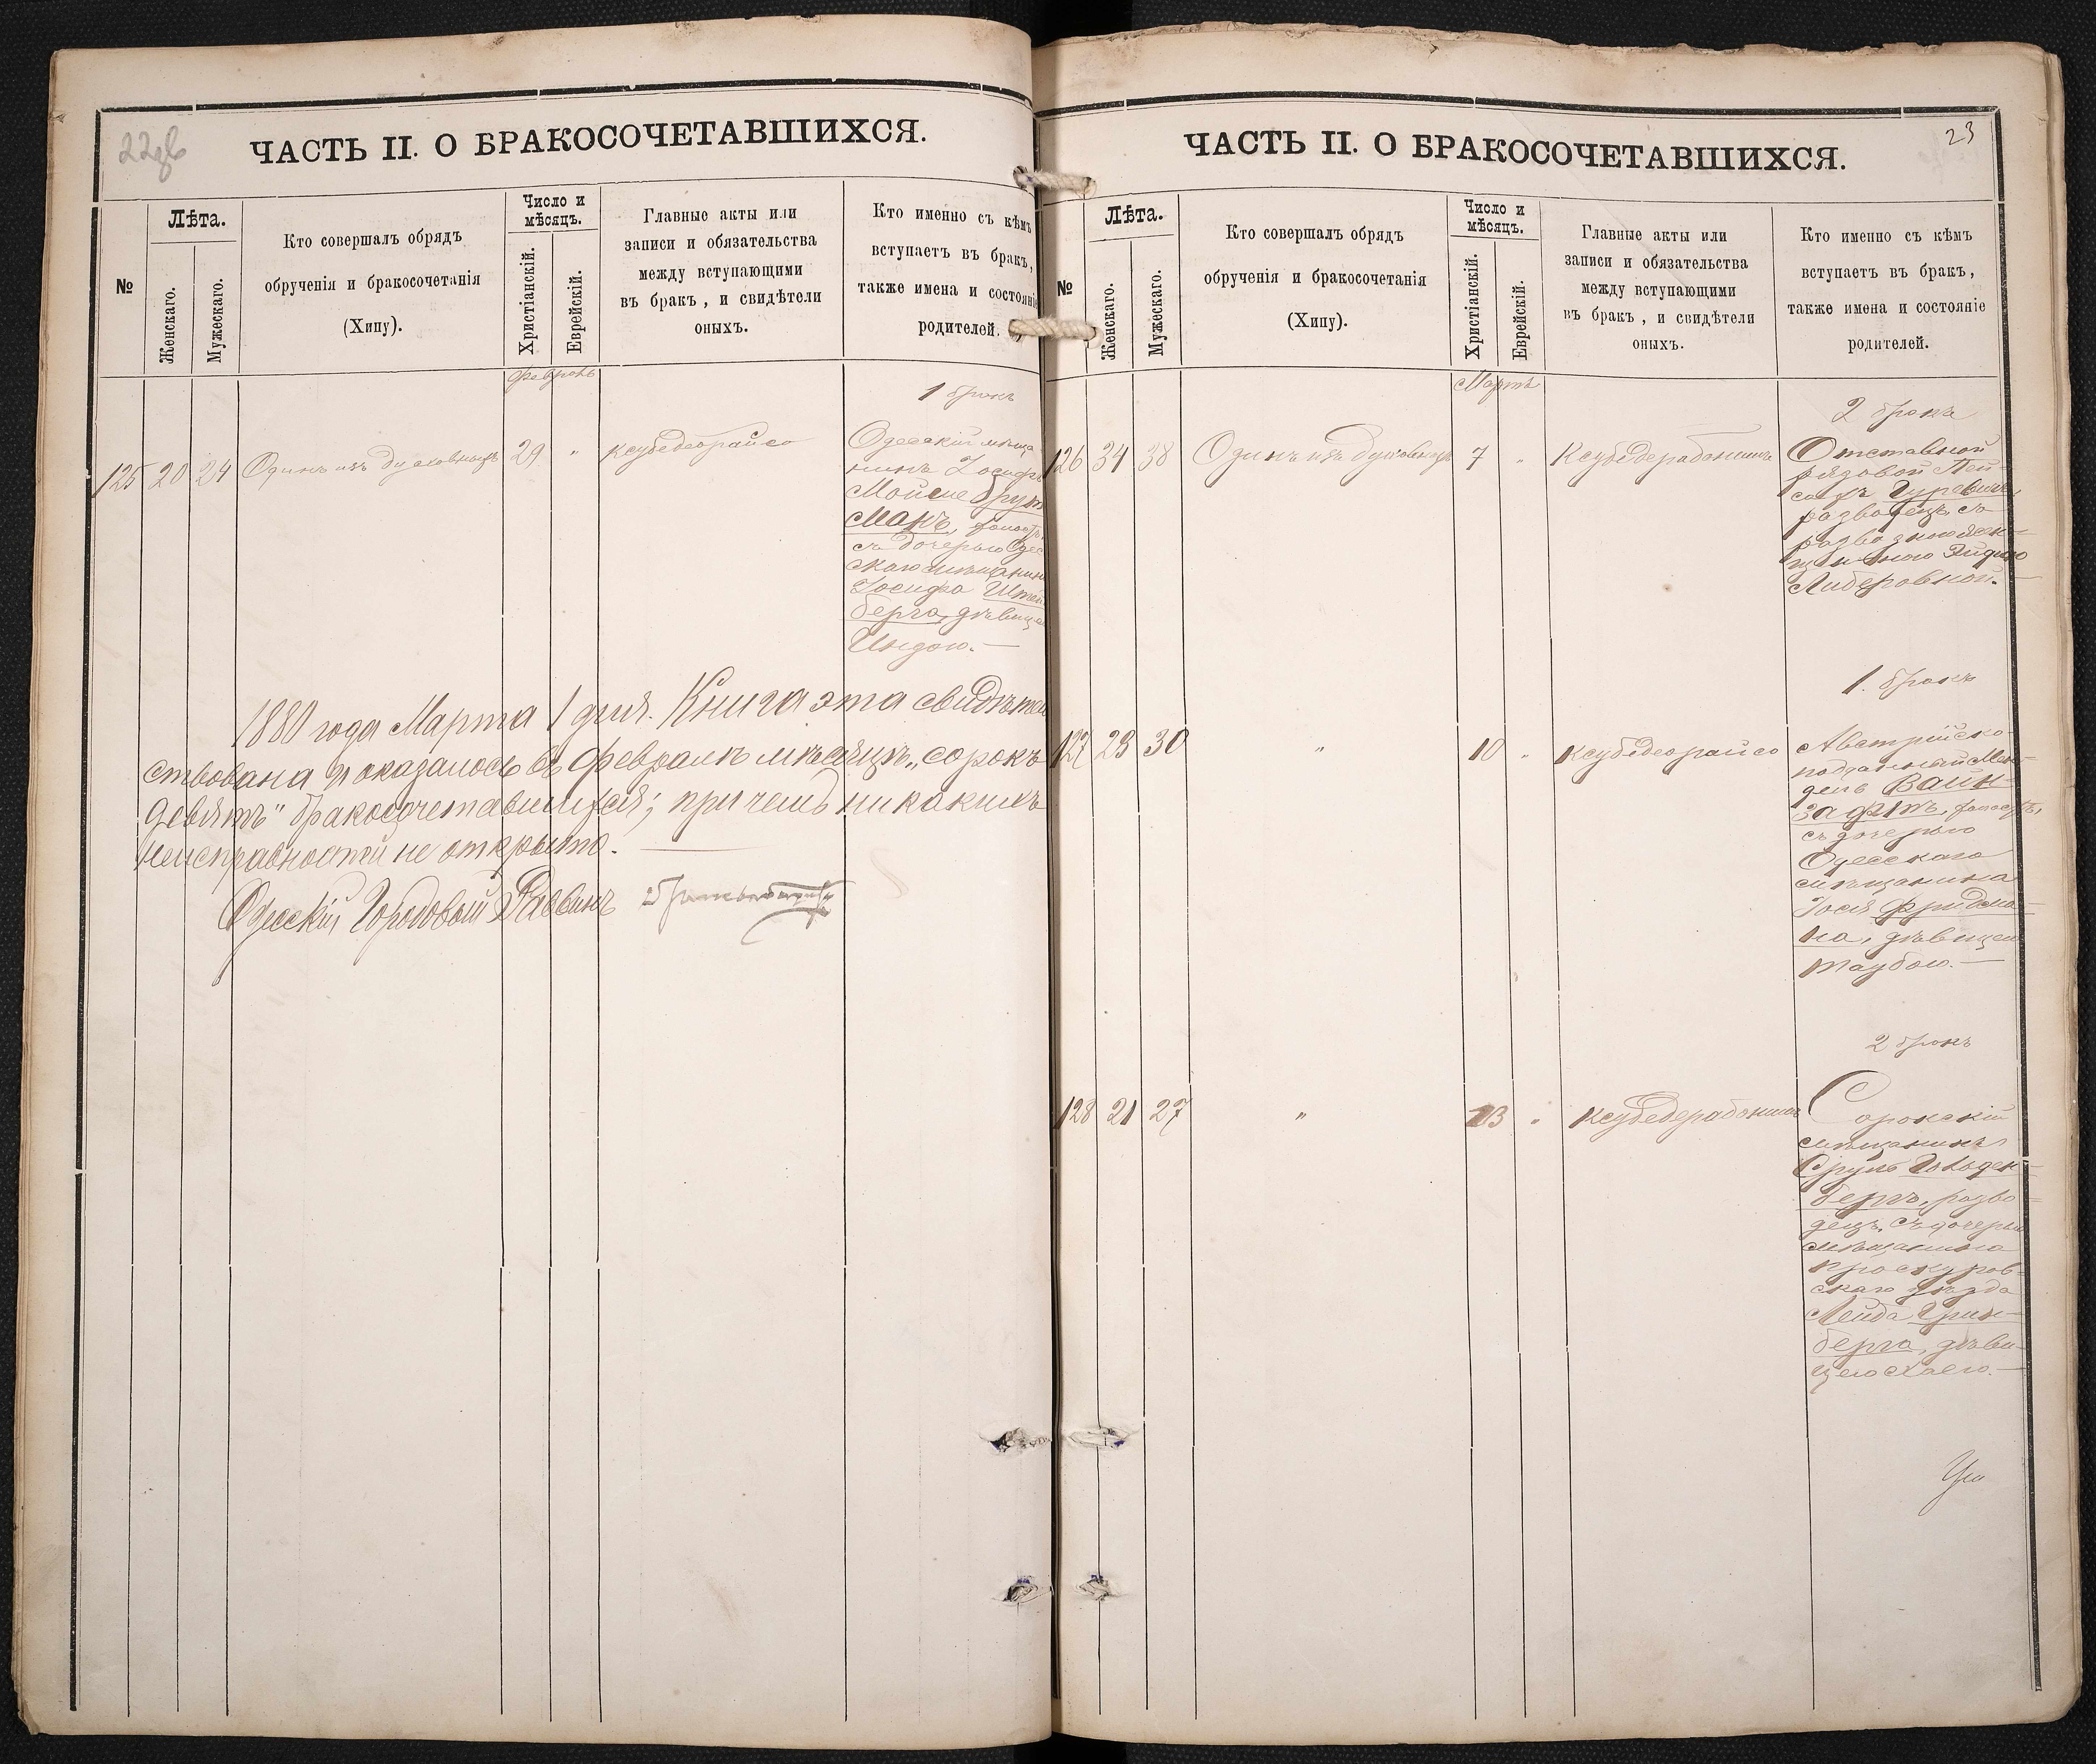 22об
ЧАСТЬ II. О БРАКОСОЧЕТАВШИХСЯ.
№
Лѣта.
Женскаго.
Мужескаго.
Кто совершалъ обрядъ
обрученія и бракосочетанія
(Хипу).
Число и
мѣсяцъ.
Христіанскій.
Еврейскій.
Главные акты или
записи и обязательства
между вступающими
въ бракъ, и свидѣтели
оныхъ.
Кто именно съ кѣмъ
вступаетъ въ бракъ,
также имена и состояніе
родителей.
Февраль
1 бракъ
125 20 24 Одинъ изъ духовныхъ 29 " ксубедеорайсо
Одесскій мѣща
нинъ Іосифъ
Мойше
макъ, холостъ
съ дочерью Одес
скаго мѣщанина
Іосифа Штей
берга, дѣвицею
Индою.—
1880 года Марта 1 дня. Книга эта свидѣтель
ствована и оказалось въ Февралѣ мѣсяцѣ „сорокъ
девять" бракосочетавшихся; при чемъ никакихъ
неисправностей не открыто.
Одесскій Городовой Раввинъ
23
ЧАСТЬ II. О БРАКОСОЧЕТАВШИХСЯ.
№
Лѣта.
Женскаго.
Мужескаго.
Кто совершалъ обрядъ
обрученія и бракосочетанія
(Хипу).
Число и
мѣсяцъ.
Христіанскій.
Еврейскій.
Главные акты или
записи и обязательства
между вступающими
въ бракъ, и свидѣтели
оныхъ.
Кто именно съ кѣмъ
вступаетъ въ бракъ,
также имена и состояніе
родителей.
Мартъ
2 бракъ
126 34 38 Одинъ изъ духовныхъ 7 " Ксубедерабонинъ
Отставной
рядовой Лей-
Гуревичъ,
разводецъ съ
разводною жен-
щиною
Либеровной.
1. бракъ
127 23 30 " 10 " ксубедеорайсо
Австрійско-
подданный Мен-
дель Вайн-
зафтъ, холостъ,
съ дочерью
Одесскаго
мѣщанина
Іося Фридма-
на, дѣвицею
Таубою.—
2 бракъ
128 21 27 " 13 " ксубедерабонинъ
Сорокскій
мѣщанинъ
Сруль Гольден-
бергъ, разво-
децъ, съ дочерью
мѣщанина
Проскуров-
скаго уѣзда
Лейба Грин-
берга, дѣви-
цею Хаею.—